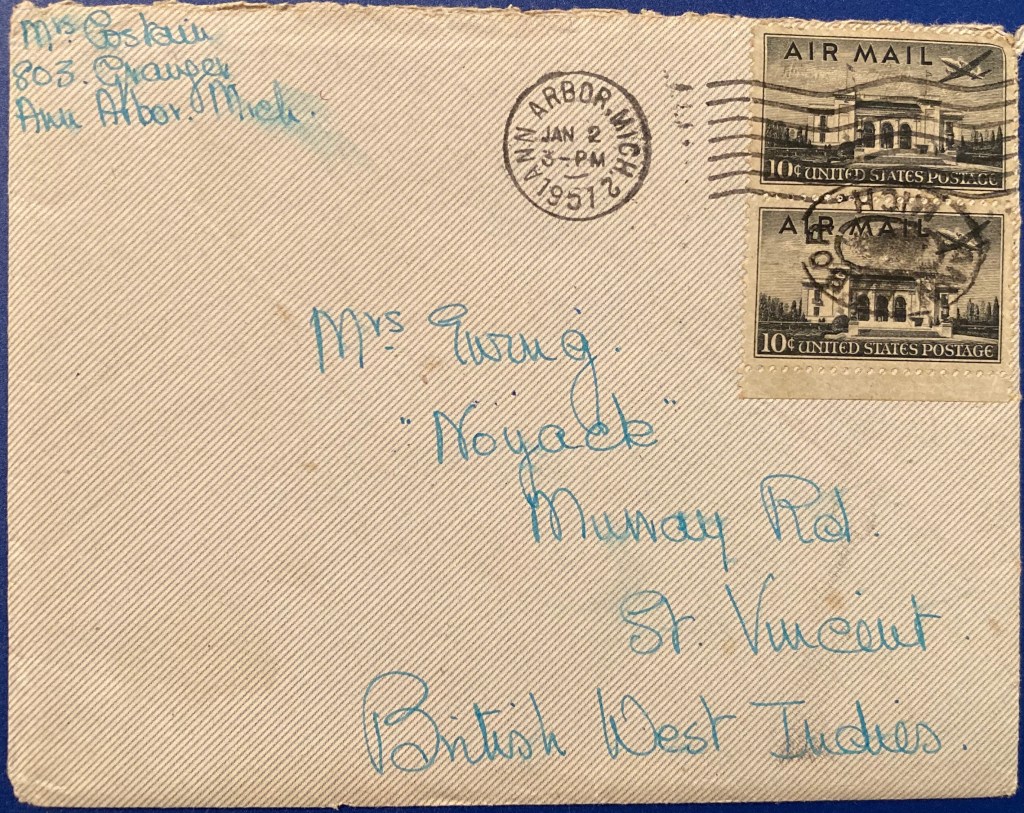 Mrs Costain
803. Granger
Ann Arbor. Mich.
ANN ARBOR, MICH. 2
JAN 2
3-PM
1951
AIR MAIL
10¢ UNITED STATES POSTAGE
MICH
AIR MAIL
10¢ UNITED STATES POSTAGE
Mrs. Ewing.
"Noyack"
Murray Rd.
St. Vincent
British West Indies.